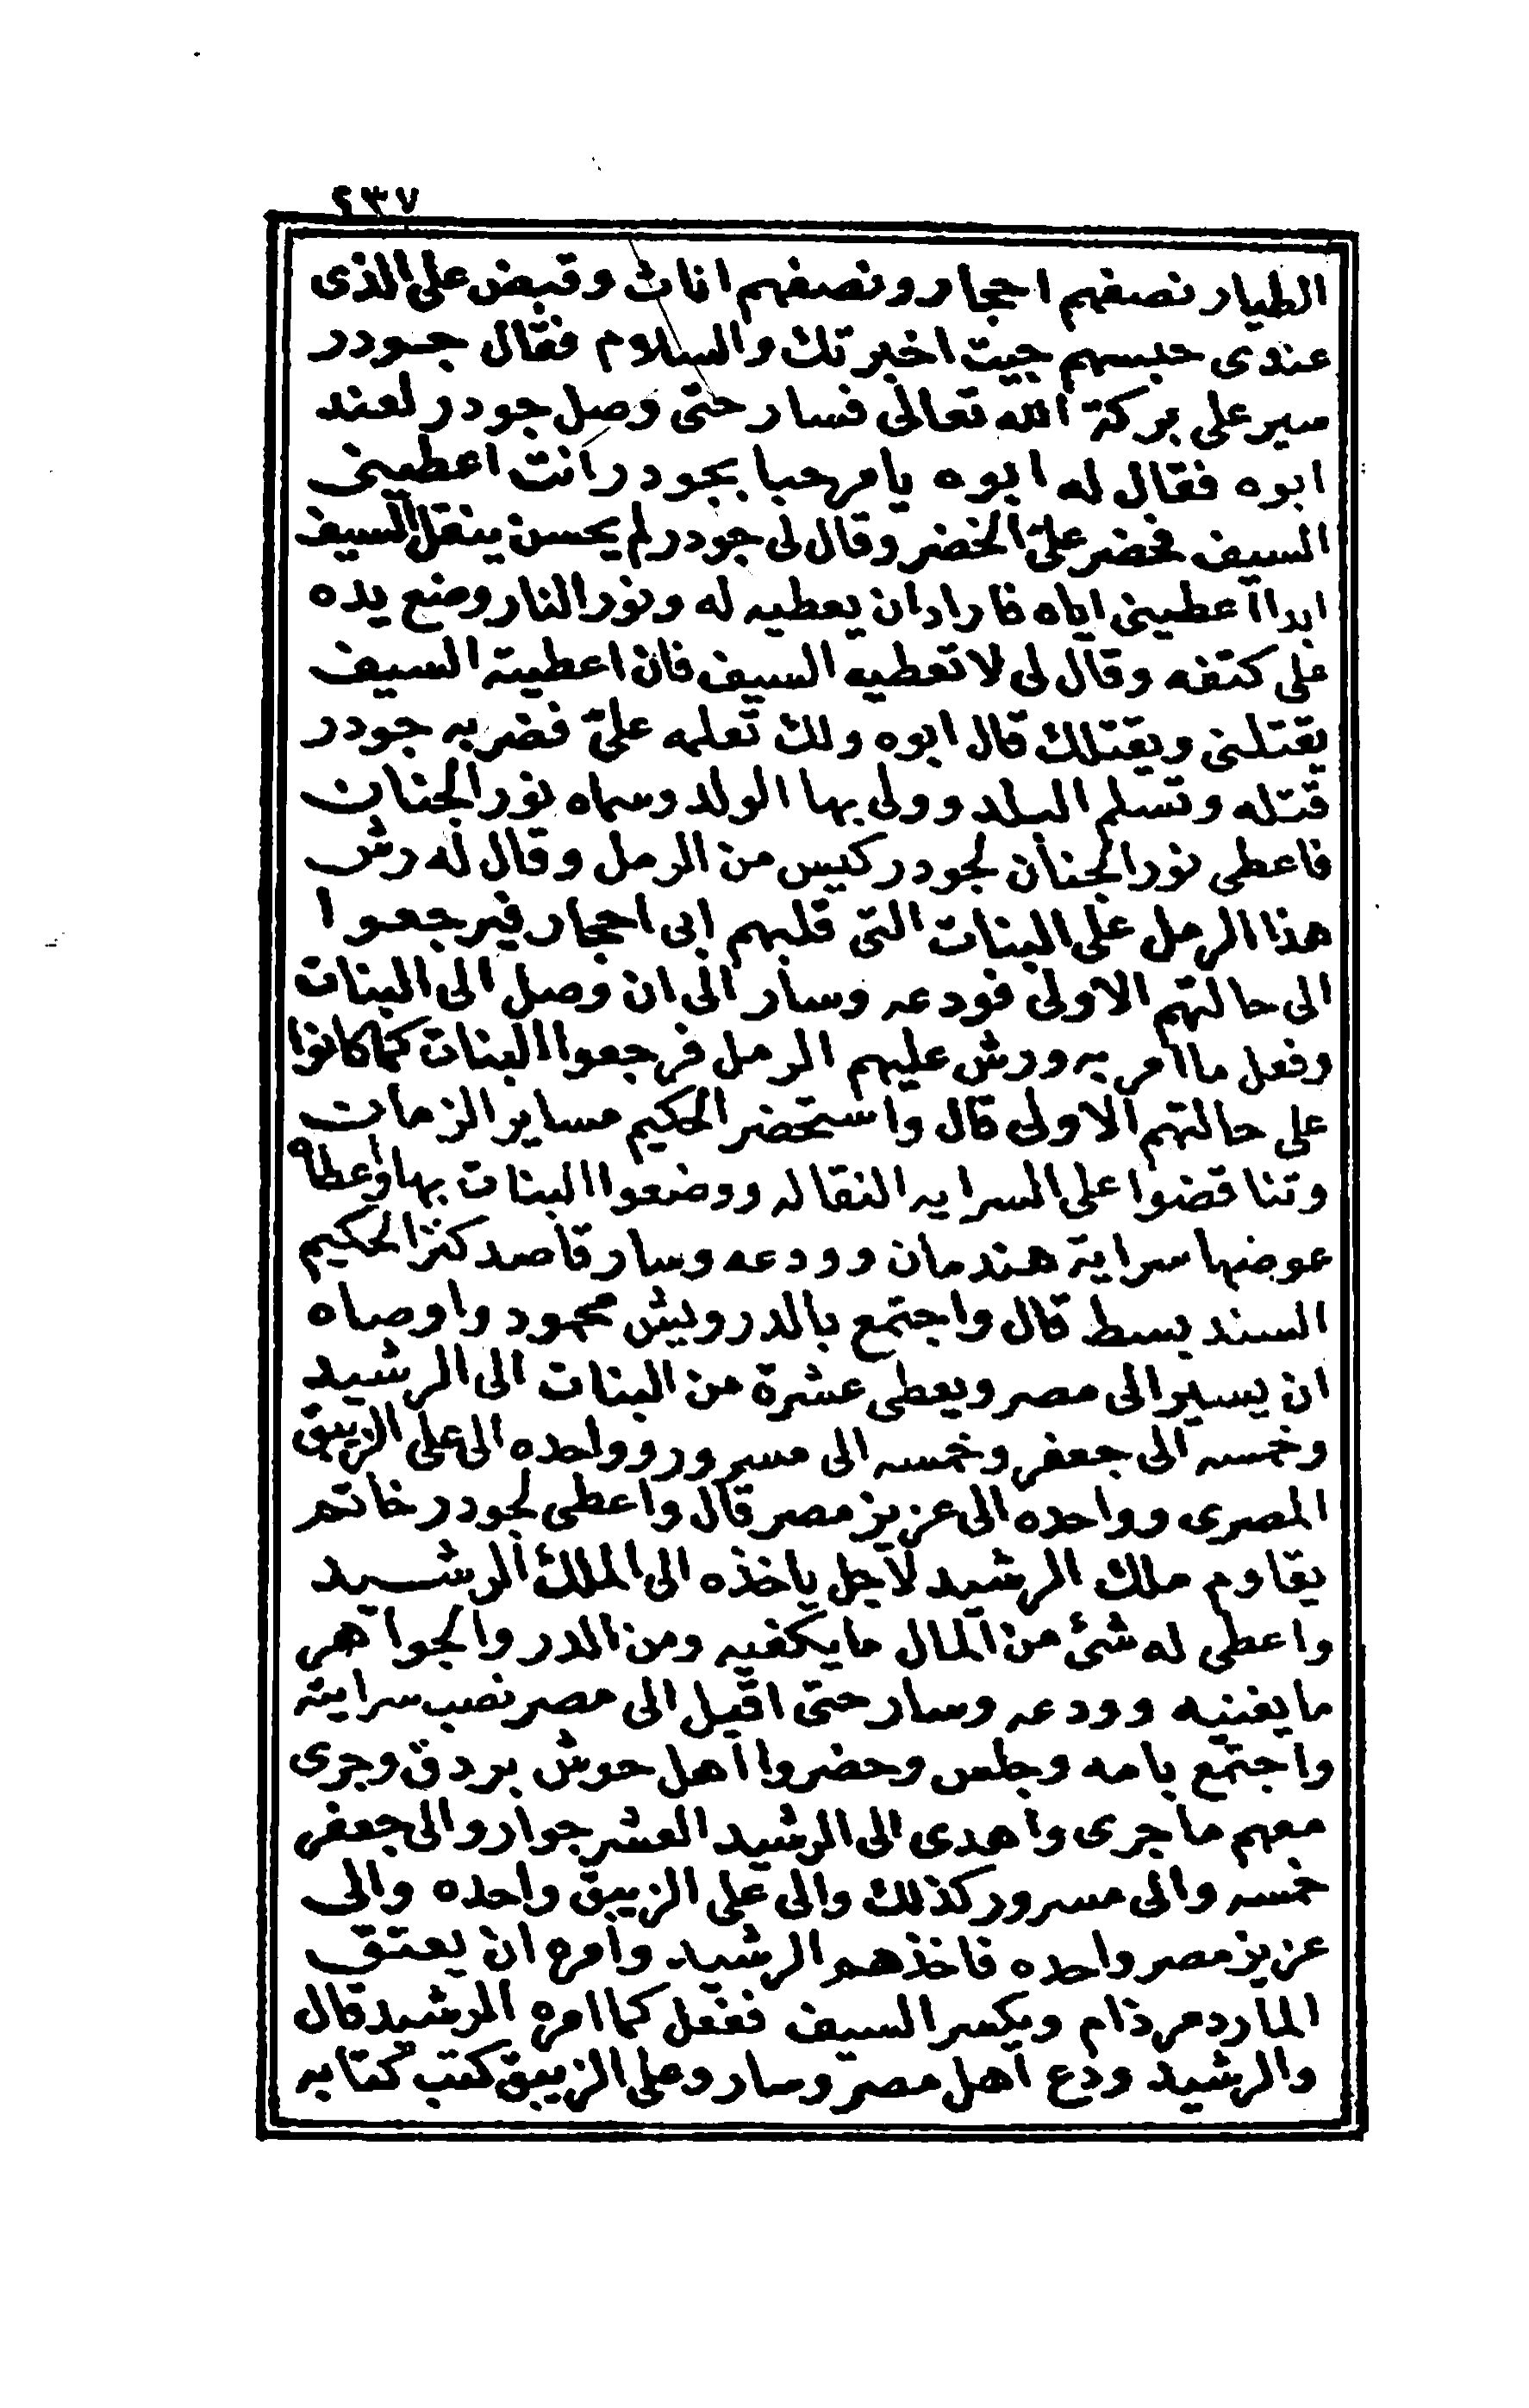 ٢٣٧
الطيار نصفهم احجار ونصفهم اناث وقبض على الذى
عندى حبسهم جيت اخبرتك والسلام فقال جودر
سير على بركة الله تعالى فسار حتى وصل جودر لعند
ابوه فقال له ابوه يا مرحبا بجودر انت اعطينى
السيف فحضر علىّ الخضر وقال لى جودر لم يحسن ينقل السيف
ابدا اعطينى اياه فاراد ان يعطيه له ونور النار وضع يده
على كتفه وقال لى لا تعطيه السيف فان اعطيته السيف
يقتلنى ويقتلك قال ابوه ولك تعلمه علىّ فضربه جودر
قتله وتسلم البلد وولى بها الولد وسماه نور الجنان
فاعطى نور الجنان لجودر كيس من الرمل وقال له رش
هذا الرمل على البنات التى قلبهم ابى احجار فيرجعوا
الى حالتهم الاولى فودعه وسار الى ان وصل الى البنات
وفعل ما امر به ورش عليهم الرمل فرجعوا البنات كما كانوا
على حالتهم الاولى قال واستحضر الحكيم مساير الزمان
وتناقضوا على السرايه النقاله ووضعوا البنات بها واعطاه
عوضها سراية هندمان وودعه وسار قاصد كنز الحكيم
السند بسط قال واجتمع بالدرويش محمود واوصاه
ان يسير الى مصر ويعطى عشرة من البنات الى الرشيد
وخمسه الى جعفر وخمسه الى مسرور وواحده الى على الزيبق
المصرى وواحده الى عزيز مصر قال واعطى لجودر خاتم
يقاوم ملك الرشيد لاجل ياخذه الى الملك الرشيد
واعطى له شئ من المال ما يكفيه ومن الدر والجواهر
ما يغنيه وودعه وسار حتى اقبل الى مصر نصب سرايته
واجتمع بامه وجلس وحضروا اهل حوش بردق وجرى
معهم ما جرى واهدى الى الرشيد العشر جوار والى جعفر
خمسه والى مسرور كذلك والى على الزيبق واحده والى
عزيز مصر واحده فاخذهم الرشيد وامره ان يعتق
المارد مرذام ويكسر السيف ففعل كما امره الرشيد قال
والرشيد ودع اهل مصر وسار وعلى الزيبق كتب كتابه